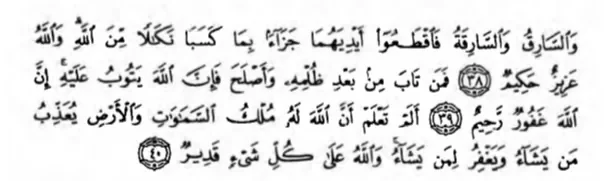 وَٱلسَّارِقُ وَٱلسَّارِقَةُ فَٱقْطَعُوٓا۟ أَيْدِيَهُمَا جَزَآءًۢ بِمَا كَسَبَا نَكَـٰلًا مِّنَ ٱللَّهِ ۗ وَٱللَّهُ
عَزِيزٌ حَكِيمٌ ﴿٣٨﴾ فَمَن تَابَ مِنۢ بَعْدِ ظُلْمِهِۦ وَأَصْلَحَ فَإِنَّ ٱللَّهَ يَتُوبُ عَلَيْهِ ۗ إِنَّ
ٱللَّهَ غَفُورٌ رَّحِيمٌ ﴿٣٩﴾ أَلَمْ تَعْلَمْ أَنَّ ٱللَّهَ لَهُۥ مُلْكُ ٱلسَّمَـٰوَٰتِ وَٱلْأَرْضِ يُعَذِّبُ
مَن يَشَآءُ وَيَغْفِرُ لِمَن يَشَآءُ ۗ وَٱللَّهُ عَلَىٰ كُلِّ شَىْءٍ قَدِيرٌ ﴿٤٠﴾